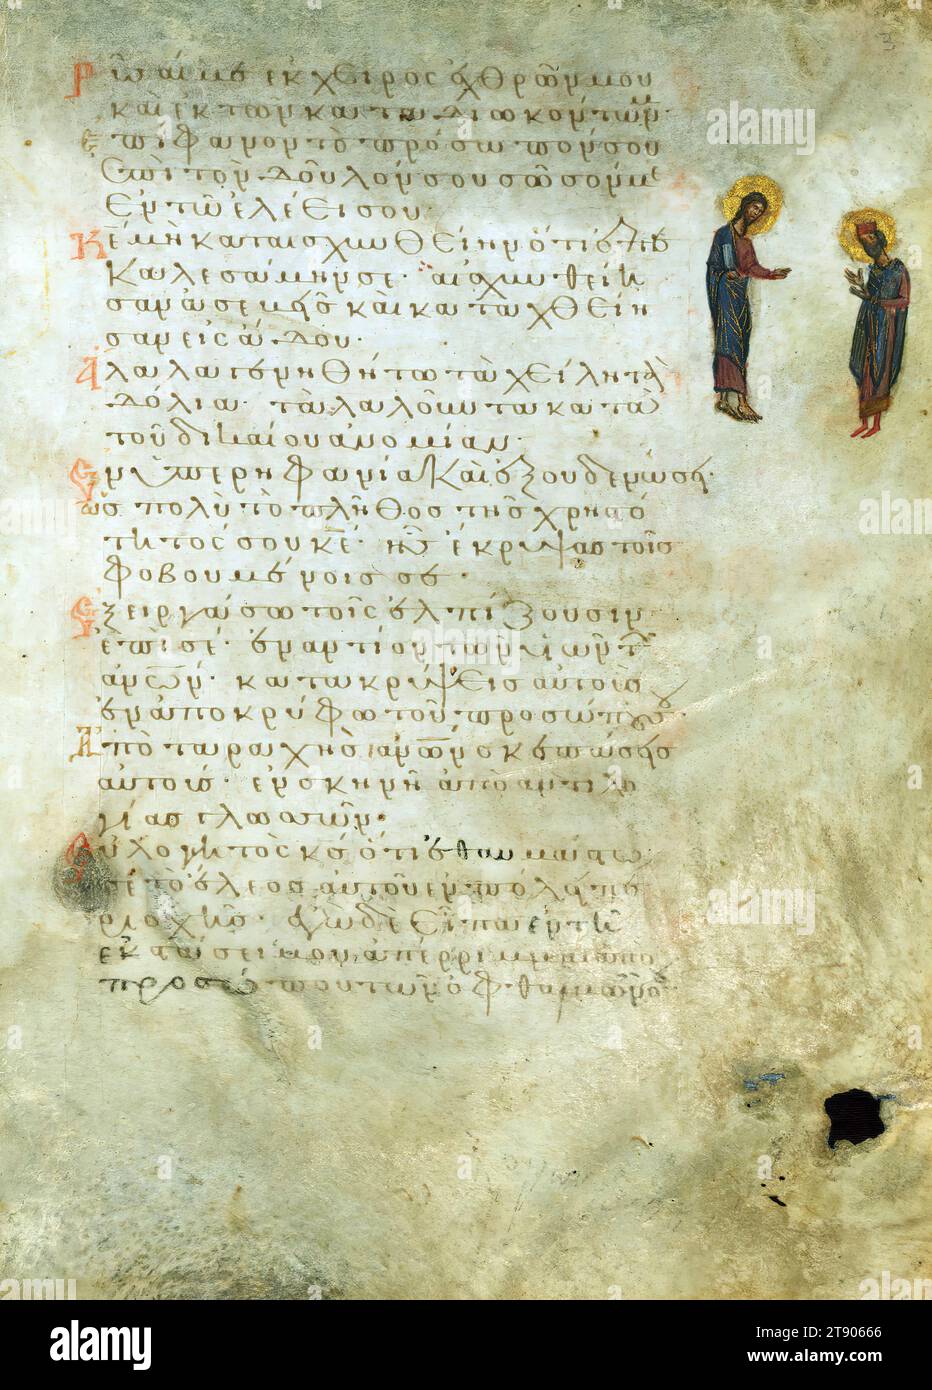 Ρῦσαί με ἐκ χειρὸς ἐχθρῶν μου
καὶ ἐκ τῶν καταδιωκόντων με
ἐπίφανον τὸ πρόσωπόν σου
ἐπὶ τὸν δοῦλόν σου σῶσόν με
ἐν τῷ ἐλέει σου·
Κε μὴ καταισχυνθείην ὅτι ἐπε
καλεσάμην σε· αἰσχυνθείη
σαν ἀσεβεῖς καὶ καταχθείη
σαν εἰς ᾅδου·
Ἄλαλα γενηθήτω τὰ χείλη τὰ
δόλια· τὰ λαλοῦντα κατὰ
τοῦ δικαίου ἀνομίαν·
Ἐν ὑπερηφανίᾳ καὶ ἐξουδενώσει·
ὡς πολὺ τὸ πλῆθος τῆς χρηστό
τητός σου κε· ἧς ἔκρυψας τοῖς
φοβουμένοις σε·
Ἐξειργάσω τοῖς ἐλπίζουσιν
ἐπὶ σέ· ἐναντίον τῶν υἱῶν τῶν
ἀνῶν· κατακρύψεις αὐτοὺς
ἐν ἀποκρύφῳ τοῦ προσώπου σου·
Ἀπὸ ταραχῆς ἀνῶν σκεπάσεις
αὐτούς· ἐν σκηνῇ ἀπὸ ἀντιλο
γίας γλωσσῶν·
Εὐλογητὸς κς ὅτι ἐθαυμάστω
σε τὸ ἔλεος αὐτοῦ ἐν πόλει πε
ριοχῆς· ἐγὼ δὲ εἶπα ἐν τῇ
ἐκστάσει μου ἀπέρριμμαι ἀπὸ
προσώπου τῶν ὀφθαλμῶν σου
alamy
alamy
alamy
alamy
alamy
Image ID: 2T90666
www.alamy.com